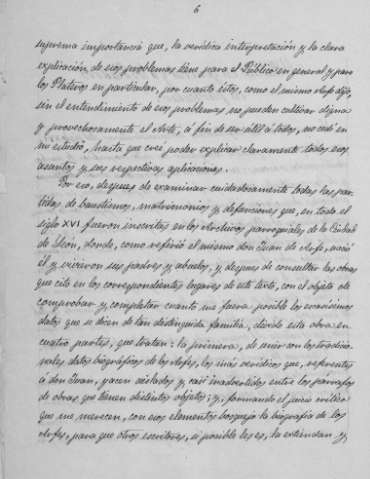 6
suprema importancia que, la verídica interpretación y la clara
explicación, de esos problemas tiene para el Público en general y para
los Plateros en particular, por cuanto éstos, como el mismo Arfe dijo,
sin el entendimiento de esos problemas no pueden cultivar digna
y provechosamente el Arte, á fin de ser útil á todos, no cedí en
mi estudio, hasta que creí poder explicar claramente todos esos
asuntos y sus respectivas aplicaciones.
Por eso, despues de examinar cuidadosamente todas las par-
tidas de bautismos, matrimonios y defunciones que, en todo el
siglo XVI fueron inscritas en los Archivos parroquiales de la Ciudad
de León, donde, como refirió el mismo don Juan de Arfe, nació
él y vivieron sus padres y abuelos, y despues de consultar las obras
que cito en los correspondientes lugares de este texto, con el objeto de
comprobar y completar cuanto me fuera posible los escasísimos
datos que se dicen de tan distinguida familia, divido esta obra en
cuatro partes, que tratan: la primera, de unir con los tradicio-
nales datos biográficos de los Arfes, los más verídicos que, referentes
á don Juan, yacen aislados y casi inadvertidos entre los párrafos
de obras que tienen distintos objetos; y, formando el juicio crítico
que me merecen, con esos elementos bosquejo la biografía de los
Arfes, para que otros escritores, si posible les es, la extiendan y,